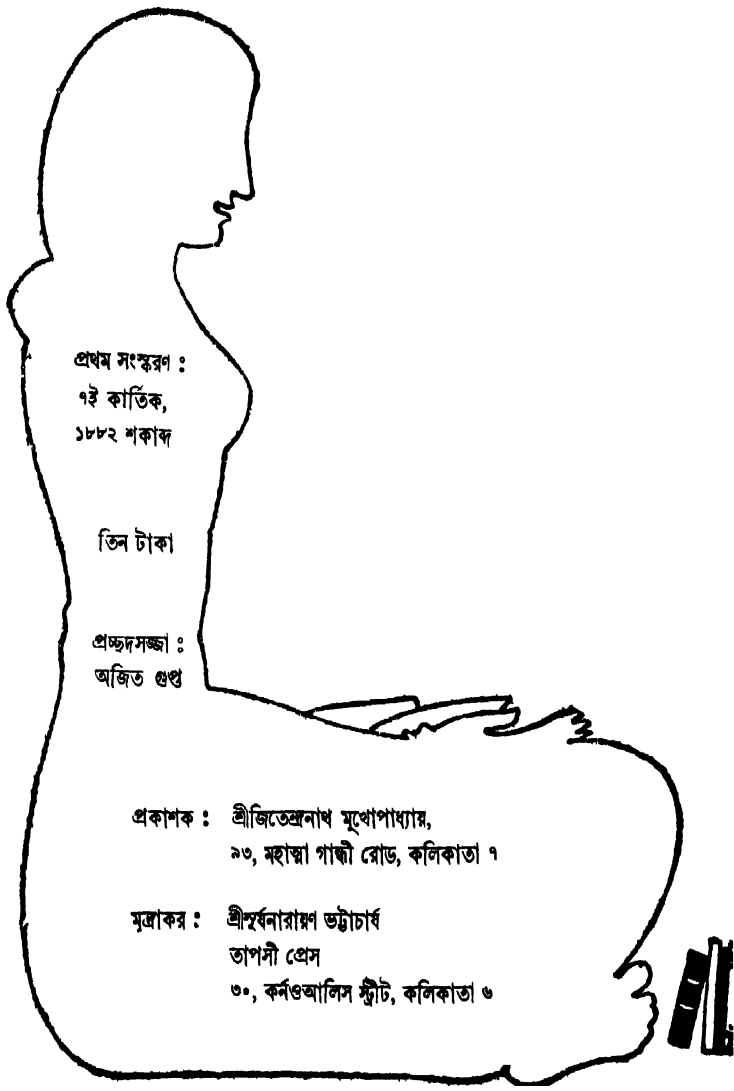 প্রথম সংস্করণ :
৭ই কার্তিক,
১৮৮২ শকাব্দ
তিন টাকা
প্রচ্ছদসজ্জা :
অজিত গুপ্ত
প্রকাশক : শ্রীজিতেন্দ্রনাথ মুখোপাধ্যায়,
৯৩, মহাত্মা গান্ধী রোড, কলিকাতা ৭
মুদ্রাকর : শ্রীসূর্যনারায়ণ ভট্টাচার্য
তাপসী প্রেস
৩০, কর্নওআলিস স্ট্রীট, কলিকাতা ৬